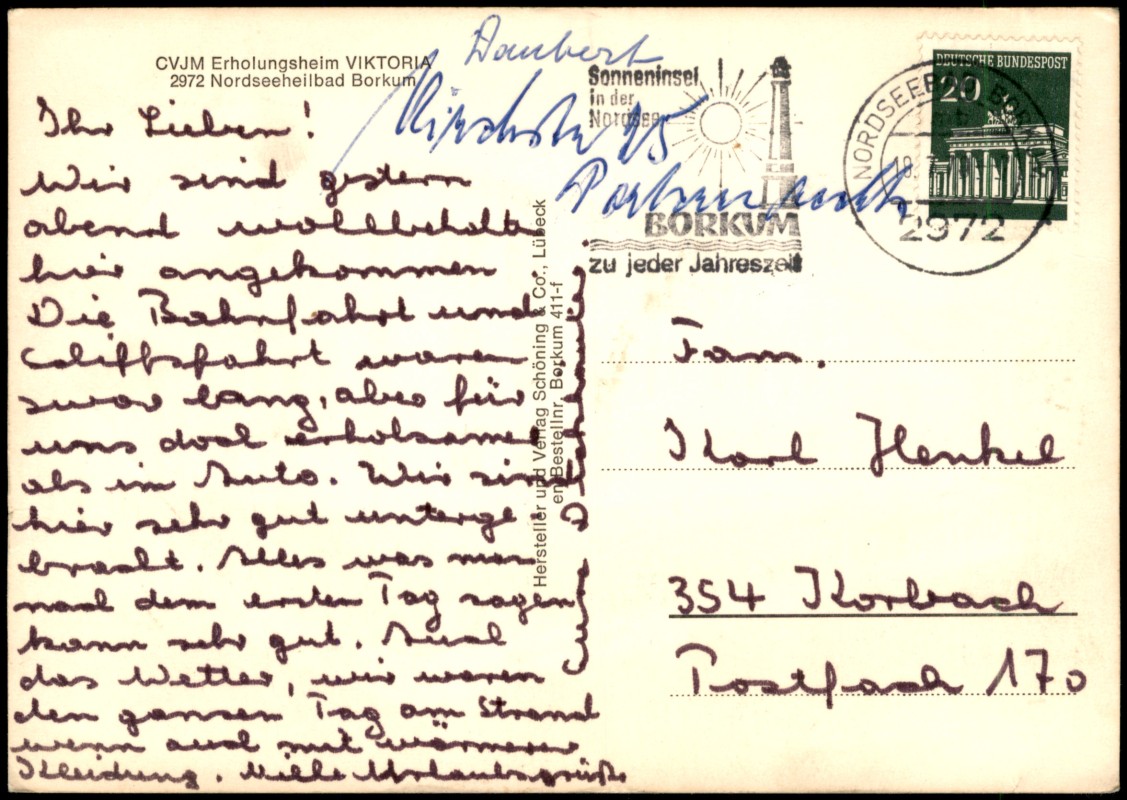 CVJM Erholungsheim VIKTORIA
2972 Nordseeheilbad Borkum
Ihr Lieben!
Wir sind gestern
abend wollbehalten
hier angekommen
Die Bahnfahrt und
Schiffsfahrt waren
zwar lang, aber für
uns doch erholsamer
als im Auto. Wir sind
hier sehr gut unterge
bracht. Alles was man
nach dem ersten Tag sagen
kann sehr gut. Auch
das Wetter, wir waren
den ganzen Tag am Strand
wenn auch mit wärmerer
Kleidung. Viele Urlaubsgrüße
Hersteller und Verlag Schöning & Co., Lübeck
Bestellnr. Borkum 411-f
Daubert
45
Sonneninsel
in der
Nordsee
BORKUM
zu jeder Jahreszeit
NORDSEEBAD BORKUM
2972
DEUTSCHE BUNDESPOST
20
Fam.
Karl Henkel
354 Korbach
Postfach 170